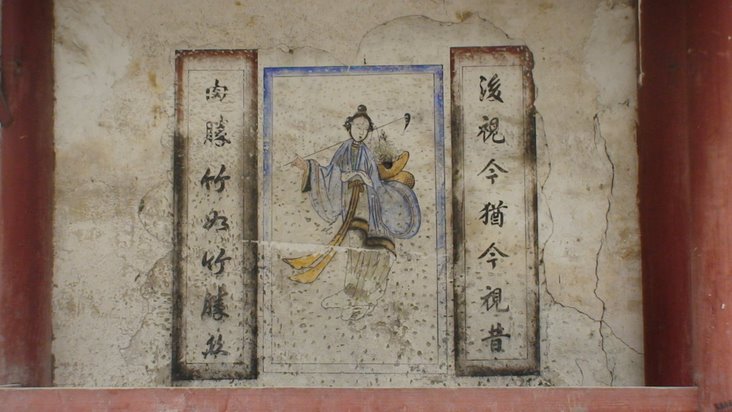 後視今猶今視昔
肉勝竹如竹勝絲